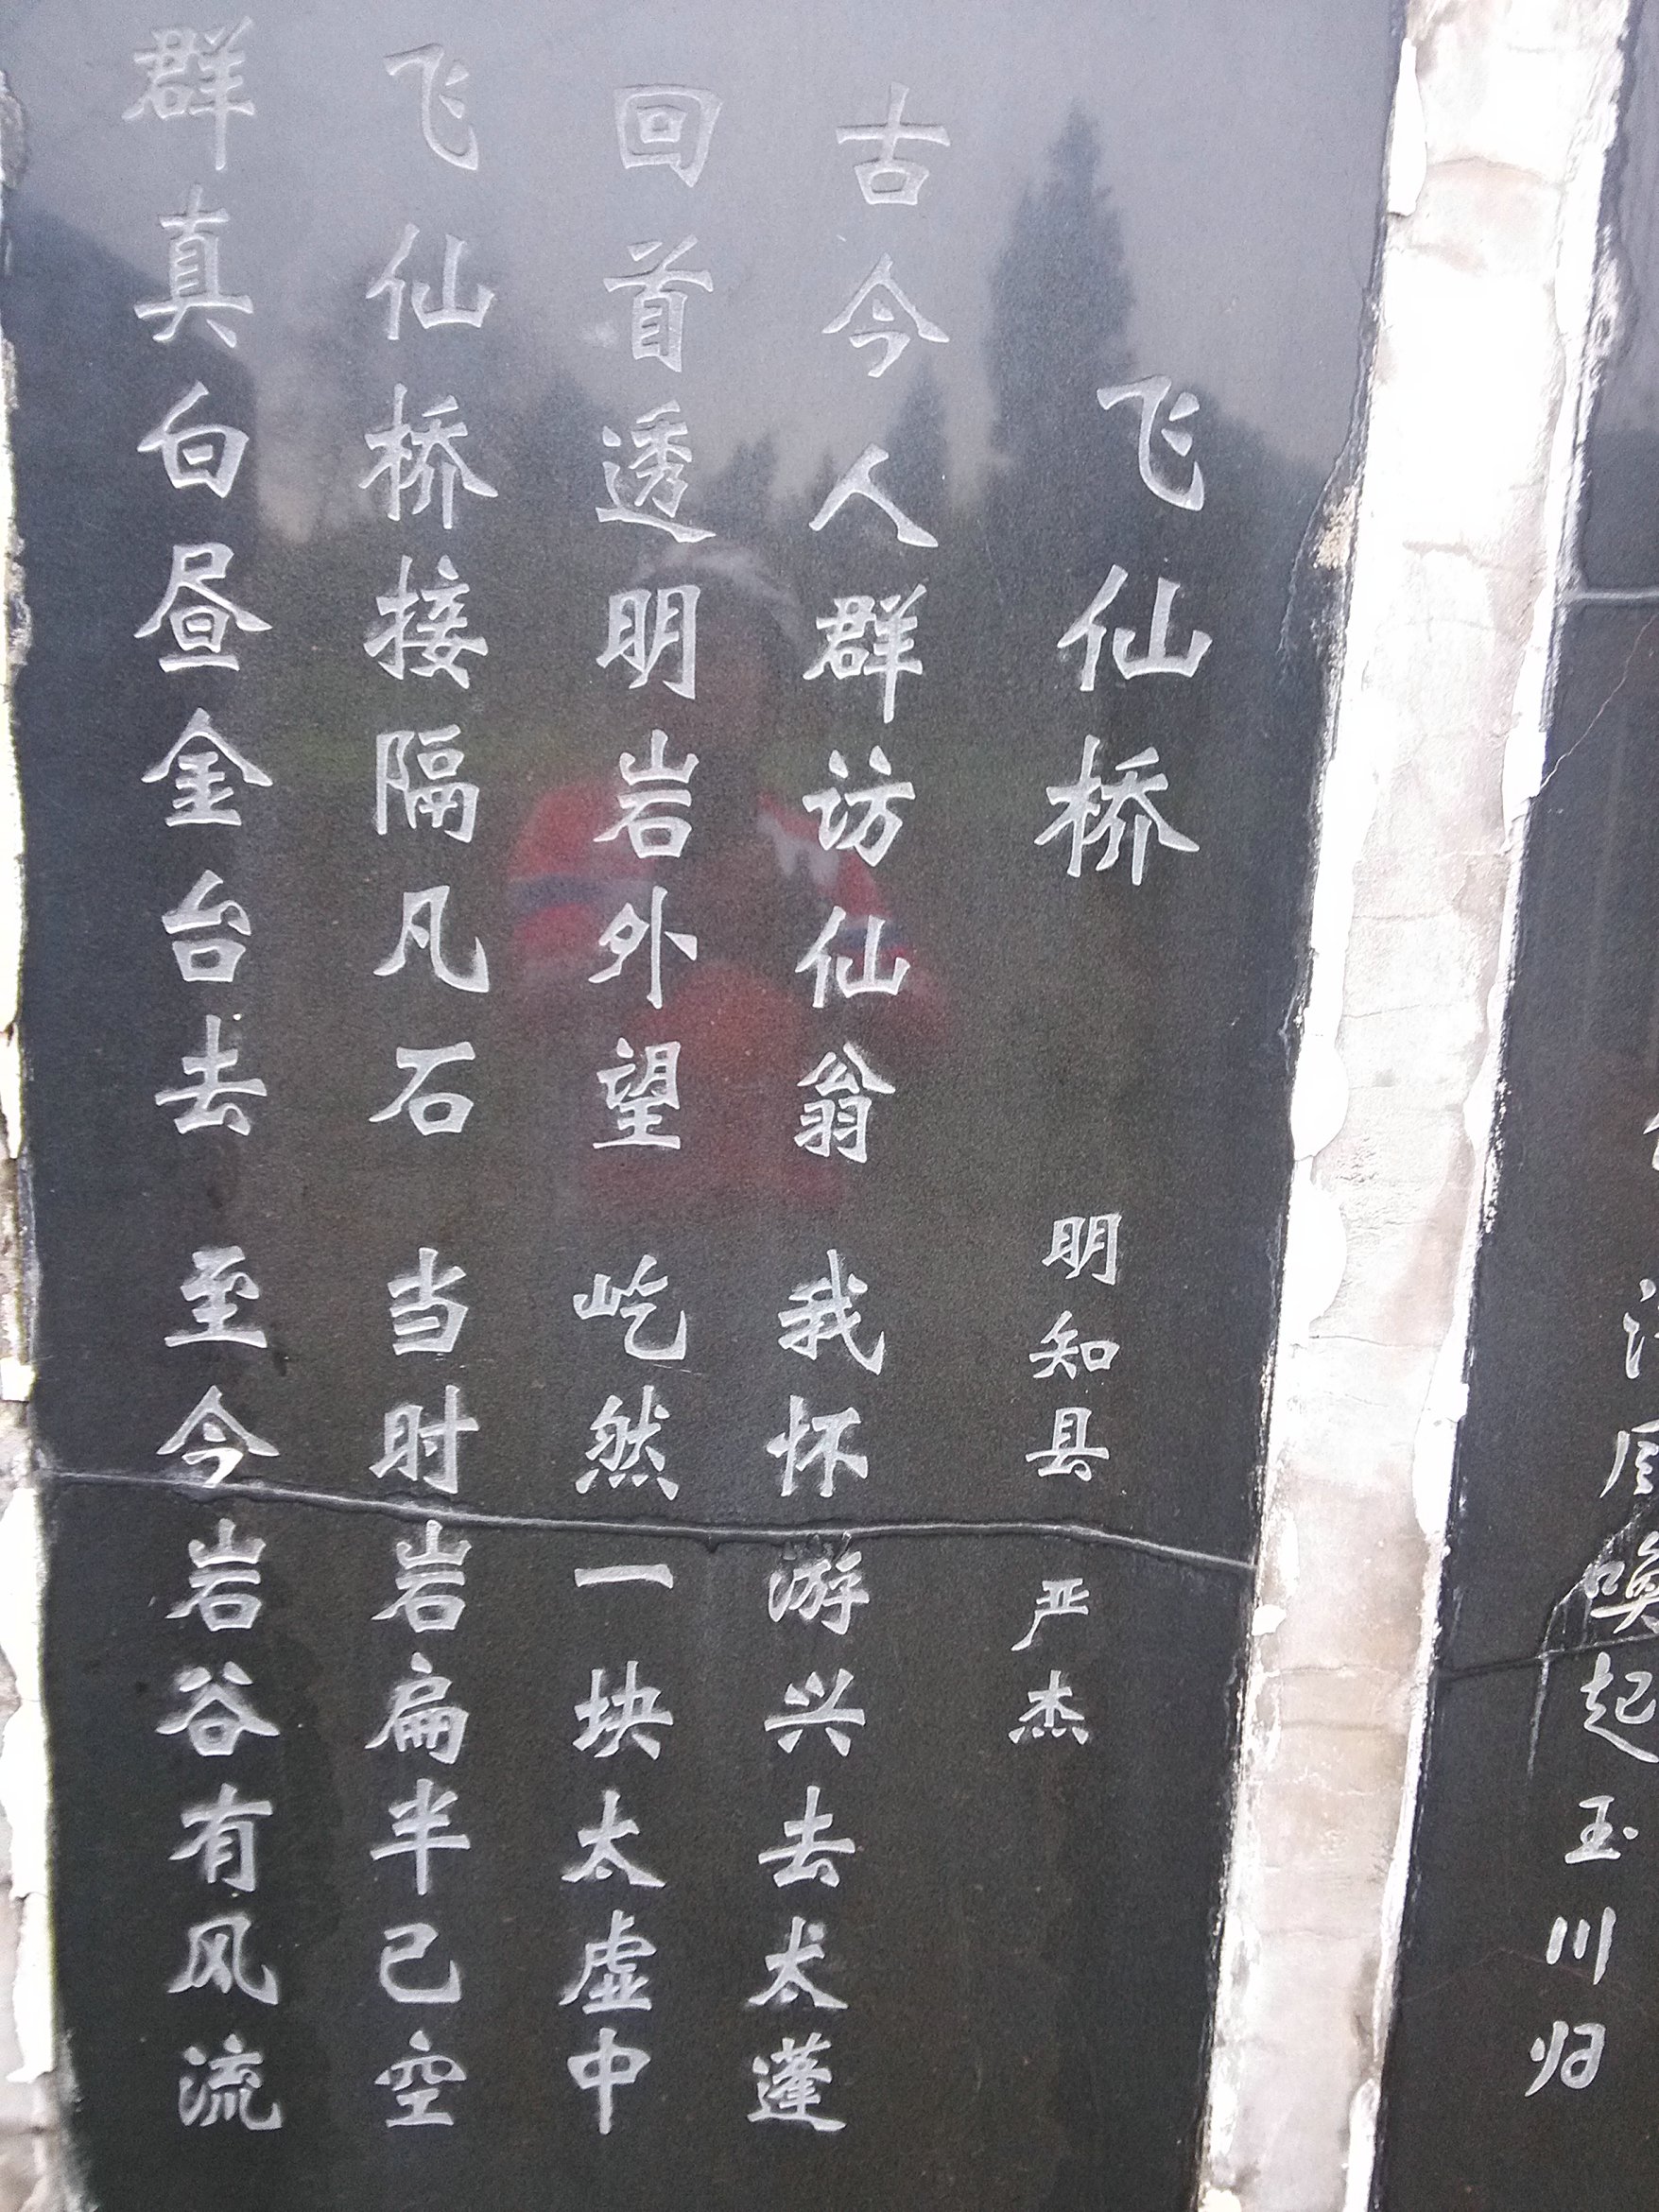 飞仙桥
明知县 严杰
古今人群访仙翁 我怀游兴去太蓬
回首透明岩外望 屹然一块太虚中
飞仙桥接隔凡石 当时岩扁半已空
群真白昼金台去 至今岩谷有风流
唤起玉川归